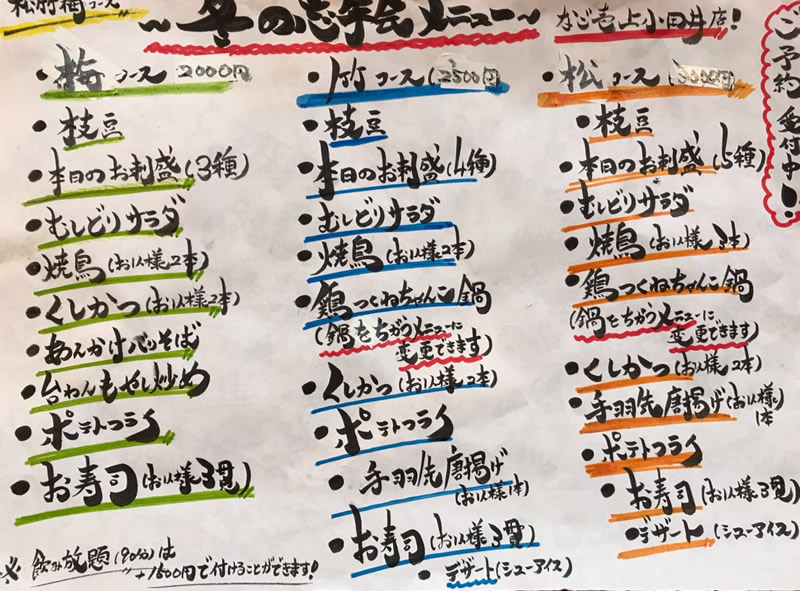 松竹梅コース
~冬の忘年会メニュー~
なご壱上小田井店!
ご予約受付中!
・梅コース 2000円
・枝豆
・本日のお刺盛(3種)
・むしどりサラダ
・焼鳥(お1人様2本)
・くしかつ(お1人様2本)
・あんかけパリそば
・台わんもやし炒め
・ポテトフライ
・お寿司(お1人様3貫)
※飲み放題(90分)は
+1500円で付けることができます!
・竹コース(2500円)
・枝豆
・本日のお刺盛(4種)
・むしどりサラダ
・焼鳥(お1人様2本)
・鶏つくねちゃんこ鍋
(鍋をちがうメニューに
変更できます)
・くしかつ(お1人様2本)
・ポテトフライ
・手羽先唐揚げ
(お1人様1本)
・お寿司(お1人様3貫)
・デザート(シューアイス)
・松コース(3000円)
・枝豆
・本日のお刺盛(5種)
・むしどりサラダ
・焼鳥(お1人様3本)
・鶏つくねちゃんこ鍋
(鍋をちがうメニューに
変更できます)
・くしかつ(お1人様2本)
・手羽先唐揚げ(お1人様)
1本
・ポテトフライ
・お寿司(お1人様3貫)
・デザート(シューアイス)